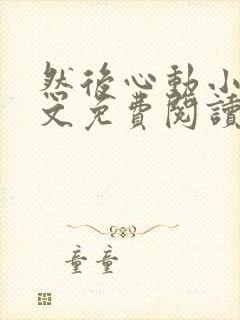 然后心動小
文免費閱讀
童童